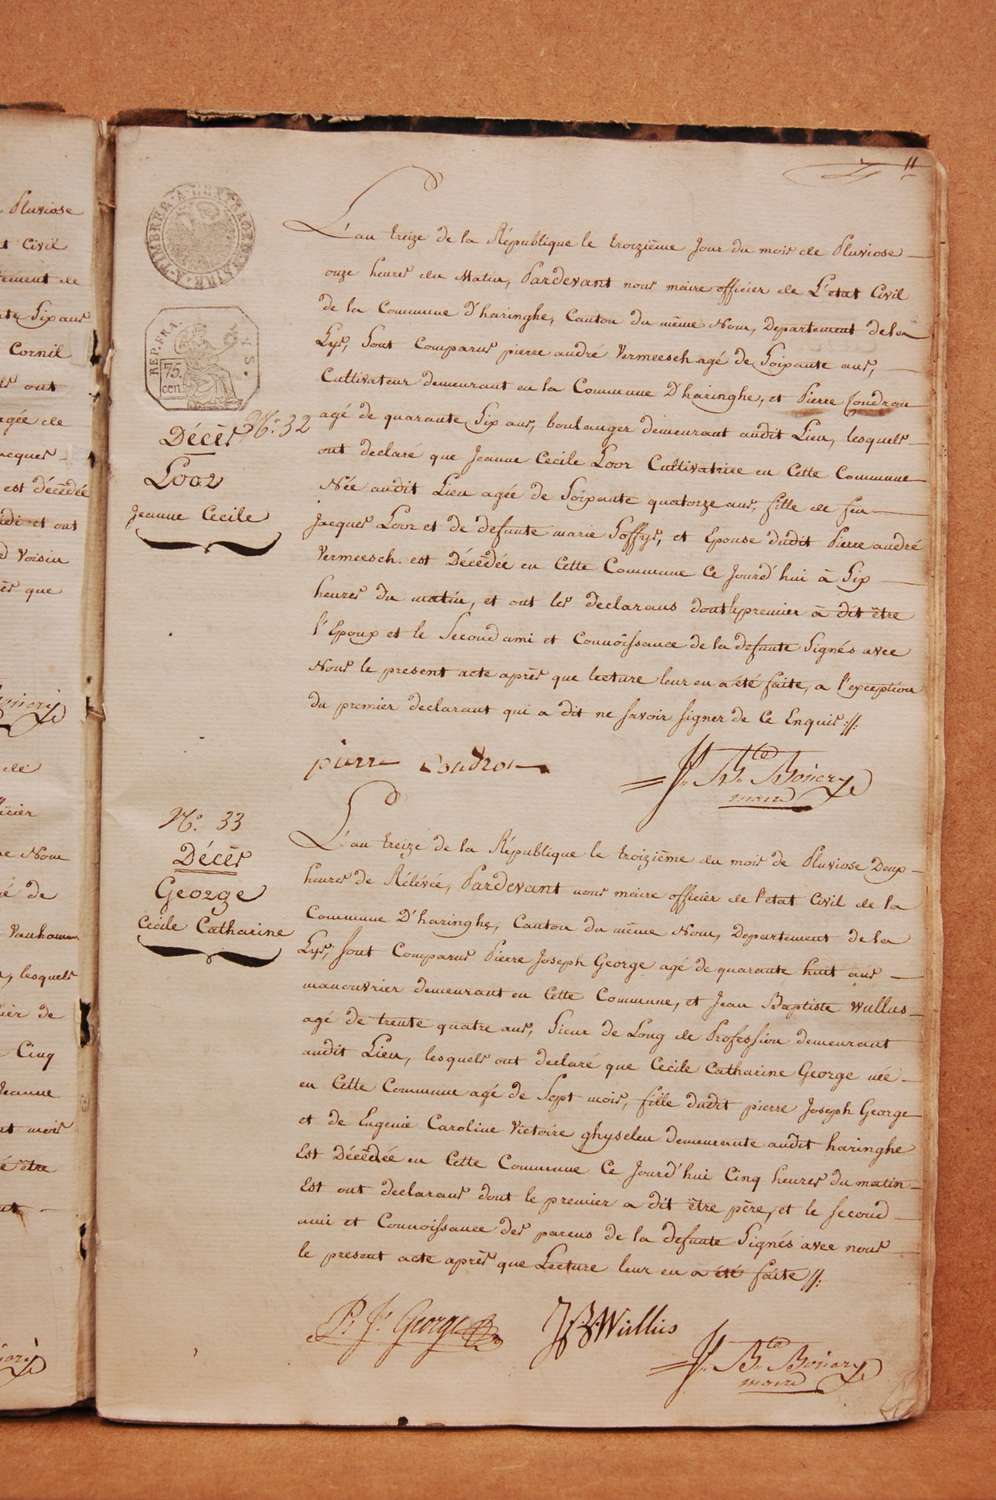 11
REP. FRA.
75
cen
N°. 32
Décès
Looz
Jeanne Cecile
L'an treize de la République le troizième Jour du mois de Pluviose
onze heures du Matin, Pardevant nous maire officier de L'état Civil
de la Commune D'haringhe, Canton du même Nom, Departement de la
Lys, Sont Comparus pierre andré Vermeesch agé de Soixante ans,
Cultivateur demeurant en la Commune D'haringhe, et Pierre Coudron
agé de quarante Six ans, boulanger demeurant audit Lieu, lesquels
ont declaré que Jeanne Cecile Looz Cultivatrice en Cette Commune
Née audit Lieu agée de Soixante quatorze ans, fille de feu
Jacques Looz et de defunte marie Soffys, et Epouse dudit Pierre andré
Vermeesch. est Décédée en Cette Commune Ce Jourd'hui à Six
heures du matin, et ont les declarans dont le premier à dit être
l'Epoux et le Second ami et Connoissance de la defunte Signés avec
Nous le present acte après que lecture leur en a été faite, a l'exception
du premier declarant qui a dit ne savoir signer de Ce Enquis //.
pierre Coudron
J. Bte Boncry
maire
N°. 33
Décès
George
Cecile Catharine
L'an treize de la République le troizième du mois de Pluviose Deux
heures de Rélévée, Pardevant nous maire officier de l'etat Civil de la
Commune D'haringhe, Canton du même Nom, Departement de la
Lys, Sont Comparus Pierre Joseph George agé de quarante huit ans
manouvrier demeurant en Cette Commune, et Jean Baptiste Wullus
agé de trente quatre ans, Sieur de Long de Profession demeurant
audit Lieu, lesquels ont declaré que Cecile Catharine George née
en Cette Commune agé de Sept mois, fille dudit pierre Joseph George
et de Eugenie Caroline Victoire ghyselen demeurante audit haringhe
Est Décédée en Cette Commune Ce Jourd'hui Cinq heures du matin
Est ont declarans dont le premier a dit être père, et le second
ami et Connoissance des parens de la defunte Signés avec nous
le present acte après que Lecture leur en a été faite //.
P. Js. George
J. B. Wullus
J. Bte Boncry
maire